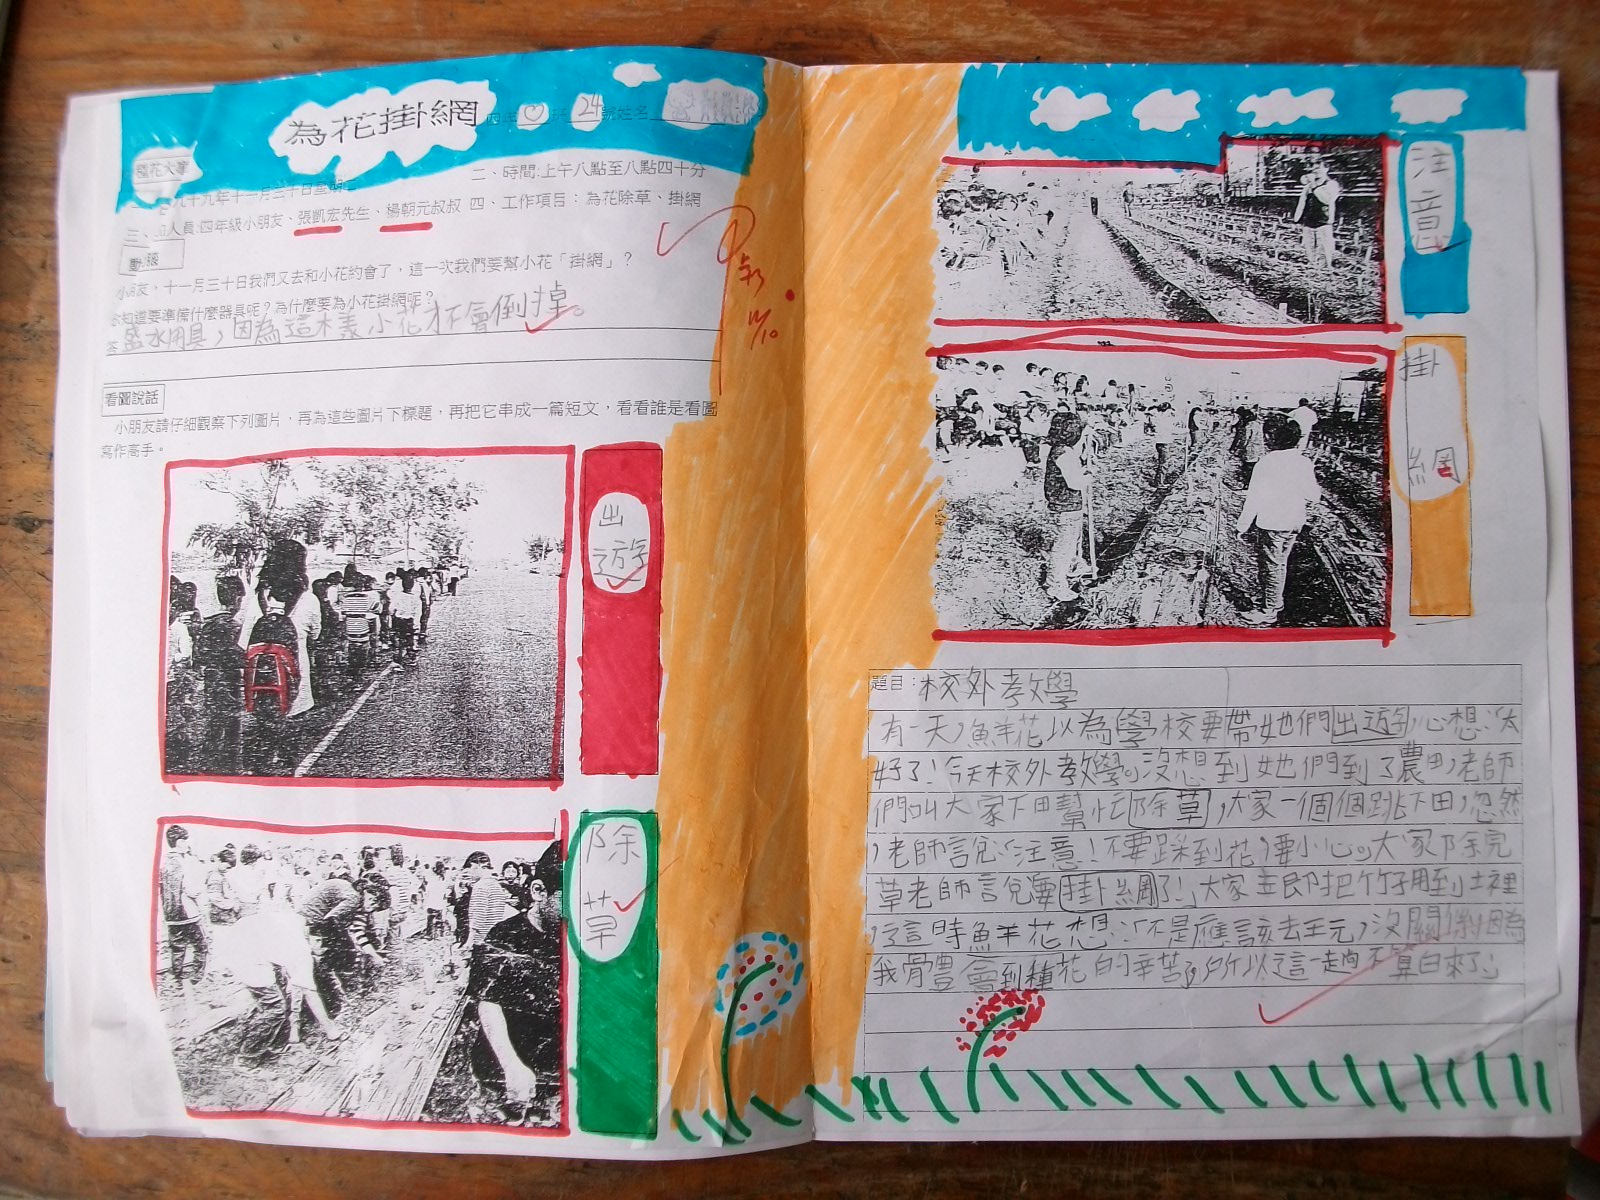 為花掛網
24
號姓名
種花大事
九十九年十一月三十日星期二
二、時間:上午八點至八點四十分
三、 人員:四年級小朋友、張凱宏先生、楊朝元叔叔
四、工作項目：為花除草、掛網
動 腦
小朋友，十一月三十日我們又去和小花約會了，這一次我們要幫小花「掛網」？
知道要準備什麼器具呢？為什麼要為小花掛網呢？
答 盛水用具，因為這樣小花才不會倒掉。
11/10
看圖說話
小朋友請仔細觀察下列圖片，再為這些圖片下標題，再把它串成一篇短文，看看誰是看圖
寫作高手。
出遊
除草
注意
掛網
題目：校外教學
有一天，鮮花以為學校要帶她們出遊，心想：「太
好了！今天校外教學。沒想到她們到了農田，老師
們叫大家下田幫忙除草，大家一個個跳下田，忽然
，老師說：「注意！不要踩到花，要小心。大家除完
草老師說要掛網了！，大家立即把竹子用到土裡
，這時鮮花想：「不是應該去玩，沒關係！因為
我體會到種花的辛苦，所以這一趟不算白來了」